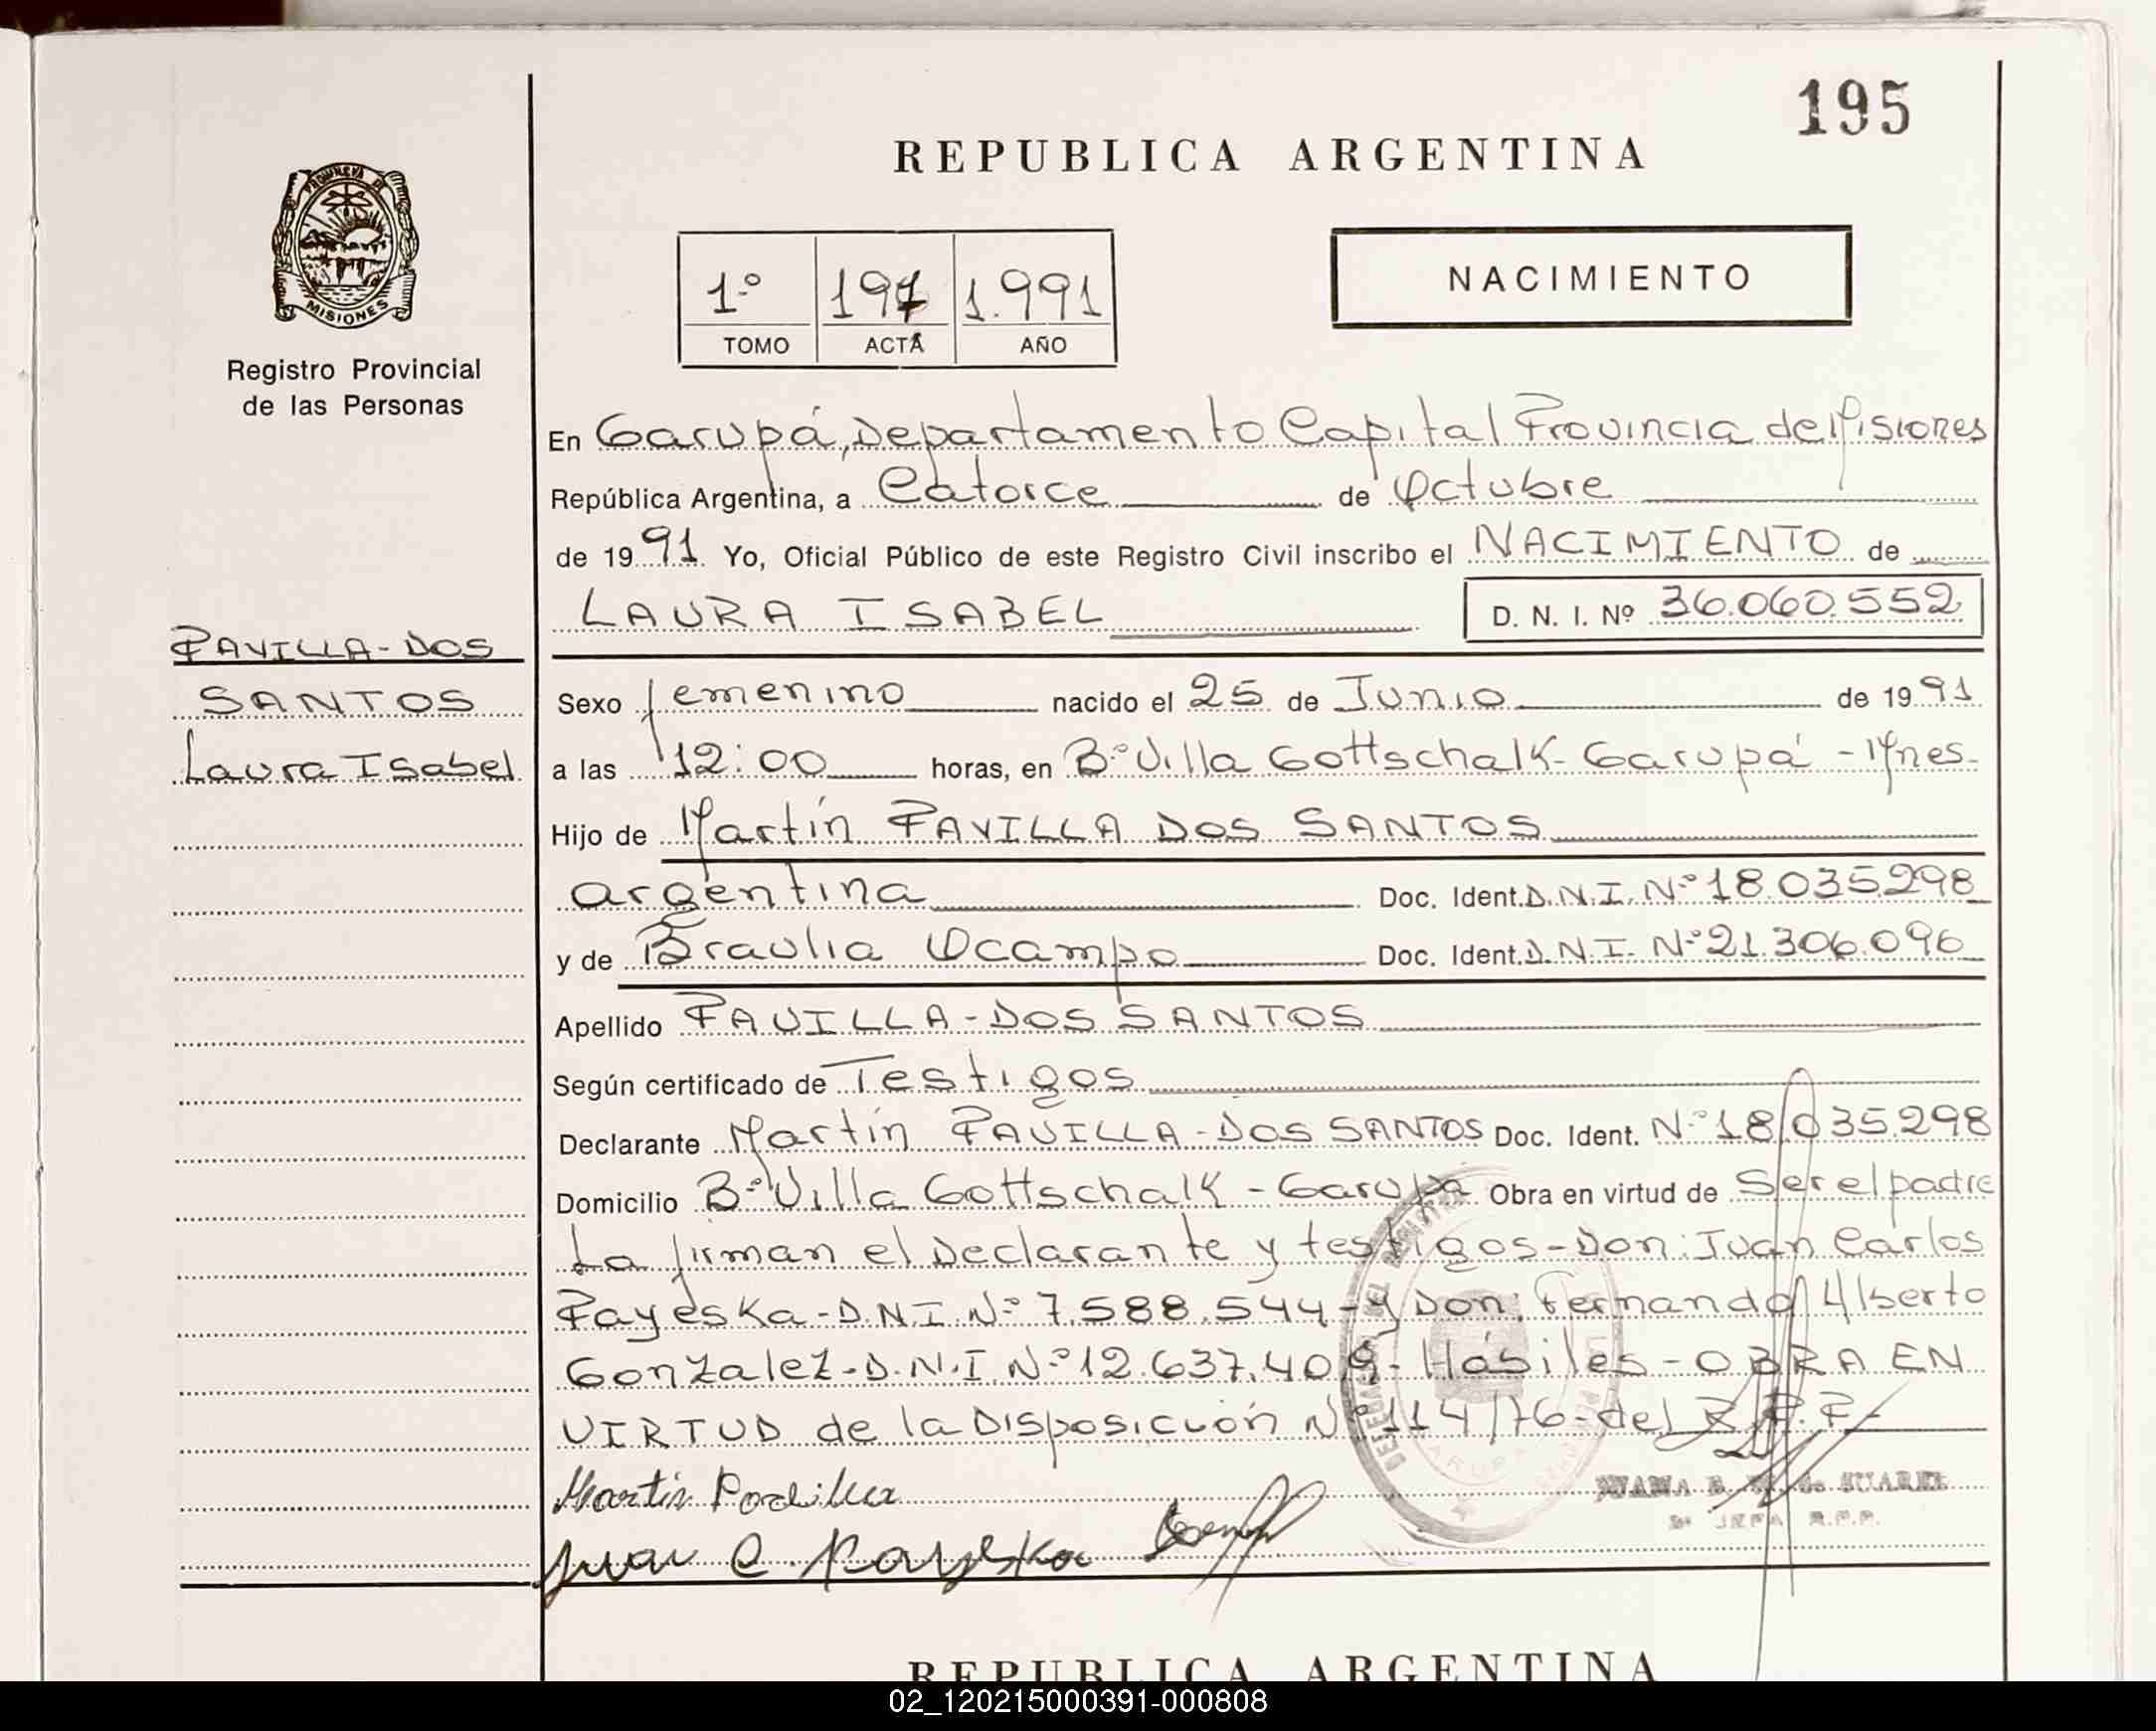 195
REPUBLICA ARGENTINA
PROVINCIA DE
MISIONES
Registro Provincial
de las Personas
1º 197 1.991
TOMO ACTA AÑO
NACIMIENTO
En Garupá, Departamento Capital Provincia de Misiones
República Argentina, a Catorce de Octubre
de 1991 Yo, Oficial Público de este Registro Civil inscribo el NACIMIENTO de
LAURA ISABEL D. N. I. Nº 36.060.552
PAVILLA-DOS
SANTOS
Laura Isabel
Sexo femenino nacido el 25 de Junio de 1991
a las 12:00 horas, en Bº Villa Gottschalk-Garupá-Mnes-
Hijo de Martín PAVILLA DOS SANTOS
argentina Doc. Ident. D.N.I. Nº 18.035.298
y de Braulia Ocampo Doc. Ident. D.N.I. Nº 21.306.096
Apellido PAVILLA-DOS SANTOS
Según certificado de Testigos
Declarante Martín PAVILLA-DOS SANTOS Doc. Ident. Nº 18.035.298
Domicilio Bº Villa Gottschalk-Garupá Obra en virtud de Ser el padre
La firman el Declarante y testigos-Don: Juan Carlos
Payeska-D.N.I. Nº 7.588.544-y Don: Fernando Alberto
Gonzalez-D.N.I Nº 12.637.409-Hábiles-OBRA EN
VIRTUD de la Disposición Nº 114/76-del R.P.P-
Martin
Juan C. Payeska
DELEGACION DEL REGISTRO
de SUAREZ
JEFA R.P.P.
REPUBLICA ARGENTINA
02_120215000391-000808